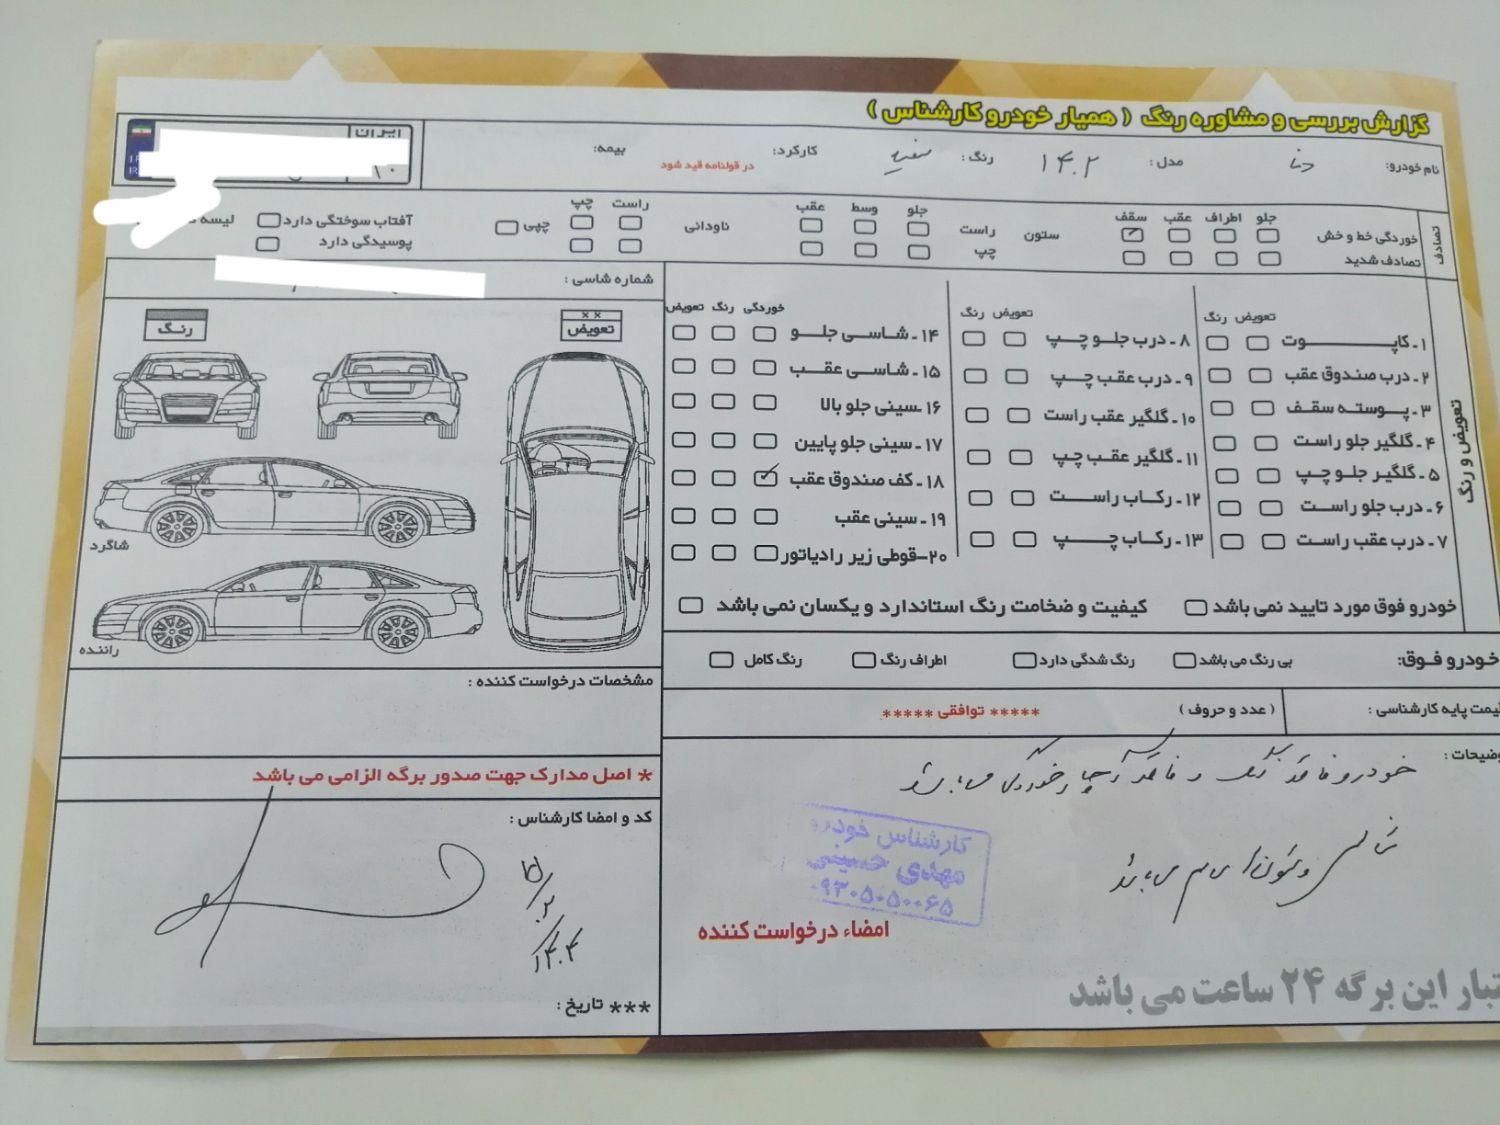 گزارش بررسی و مشاوره رنگ ( همیار خودرو کارشناس )
نام خودرو: دنا مدل: ۱۴۰۲ رنگ: سفید کارکرد: بیمه:
در قولنامه قید شود
ایران
۱۰
تصادف
جلو اطراف عقب سقف
خوردگی خط و خش
تصادف شدید
ستون راست چپ
جلو وسط عقب
ناودانی
راست چپ
چپی
آفتاب سوختگی دارد
پوسیدگی دارد
لیسه
شماره شاسی :
تعویض و رنگ
تعویض رنگ
۱ـ کاپـوت
۲ـ درب صندوق عقب
۳ـ پوسته سقف
۴ـ گلگیر جلو راست
۵ـ گلگیر جلو چپ
۶ـ درب جلو راست
۷ـ درب عقب راست
تعویض رنگ
۸ـ درب جلو چپ
۹ـ درب عقب چپ
۱۰ـ گلگیر عقب راست
۱۱ـ گلگیر عقب چپ
۱۲ـ رکاب راست
۱۳ـ رکاب چپ
خوردگی رنگ تعویض
۱۴ـ شاسی جلو
۱۵ـ شاسی عقب
۱۶ـ سینی جلو بالا
۱۷ـ سینی جلو پایین
۱۸ـ کف صندوق عقب
۱۹ـ سینی عقب
۲۰–قوطی زیر رادیاتور
خودرو فوق مورد تایید نمی باشد
کیفیت و ضخامت رنگ استاندارد و یکسان نمی باشد
خودرو فوق:
بی رنگ می باشد
رنگ شدگی دارد
اطراف رنگ
رنگ کامل
قیمت پایه کارشناسی :
( عدد و حروف )
***** توافقی *****
توضیحات :
خودرو فاقد رنگ و فاقد آچار خوردگی می باشد
شاسی و ستون ها سالم می باشد
کارشناس خودرو
مهدی حسینی
۰۹۳۰۵۰۵۰۰۶۵
امضاء درخواست کننده
اعتبار این برگه ۲۴ ساعت می باشد
رنگ
×× تعویض
شاگرد
راننده
مشخصات درخواست کننده :
* اصل مدارک جهت صدور برگه الزامی می باشد
کد و امضا کارشناس :
۱۵/۲/۱۴۰۴
*** تاریخ :